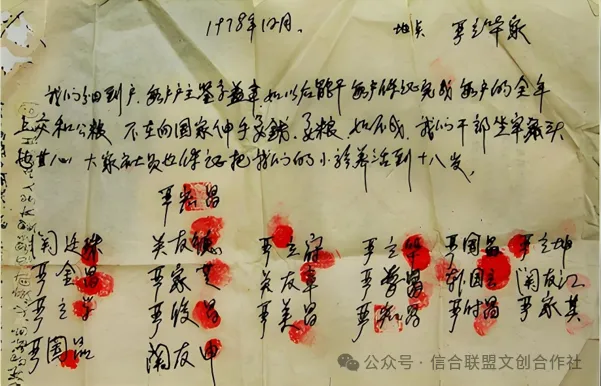 1978年12月. 地点 严立华家
我们分田到户,每户户主签字盖章,如以后能干每户保证完成每户的全年
上交和公粮 不在向国家伸手要钱要粮,如不成,我们干部坐牢杀头
也甘心,大家社员也保证把我们的小孩养活到十八岁,
严宏昌
关廷珠 关友德 严立富 严立华 严国昌 严立坤
严金昌 严家芝 关友章 严学昌 韩国云 关友江
严立学 严俊昌 严美昌 严宏昌 严付昌 严家其
严国品 关友申
公众号·信合联盟文创合作社